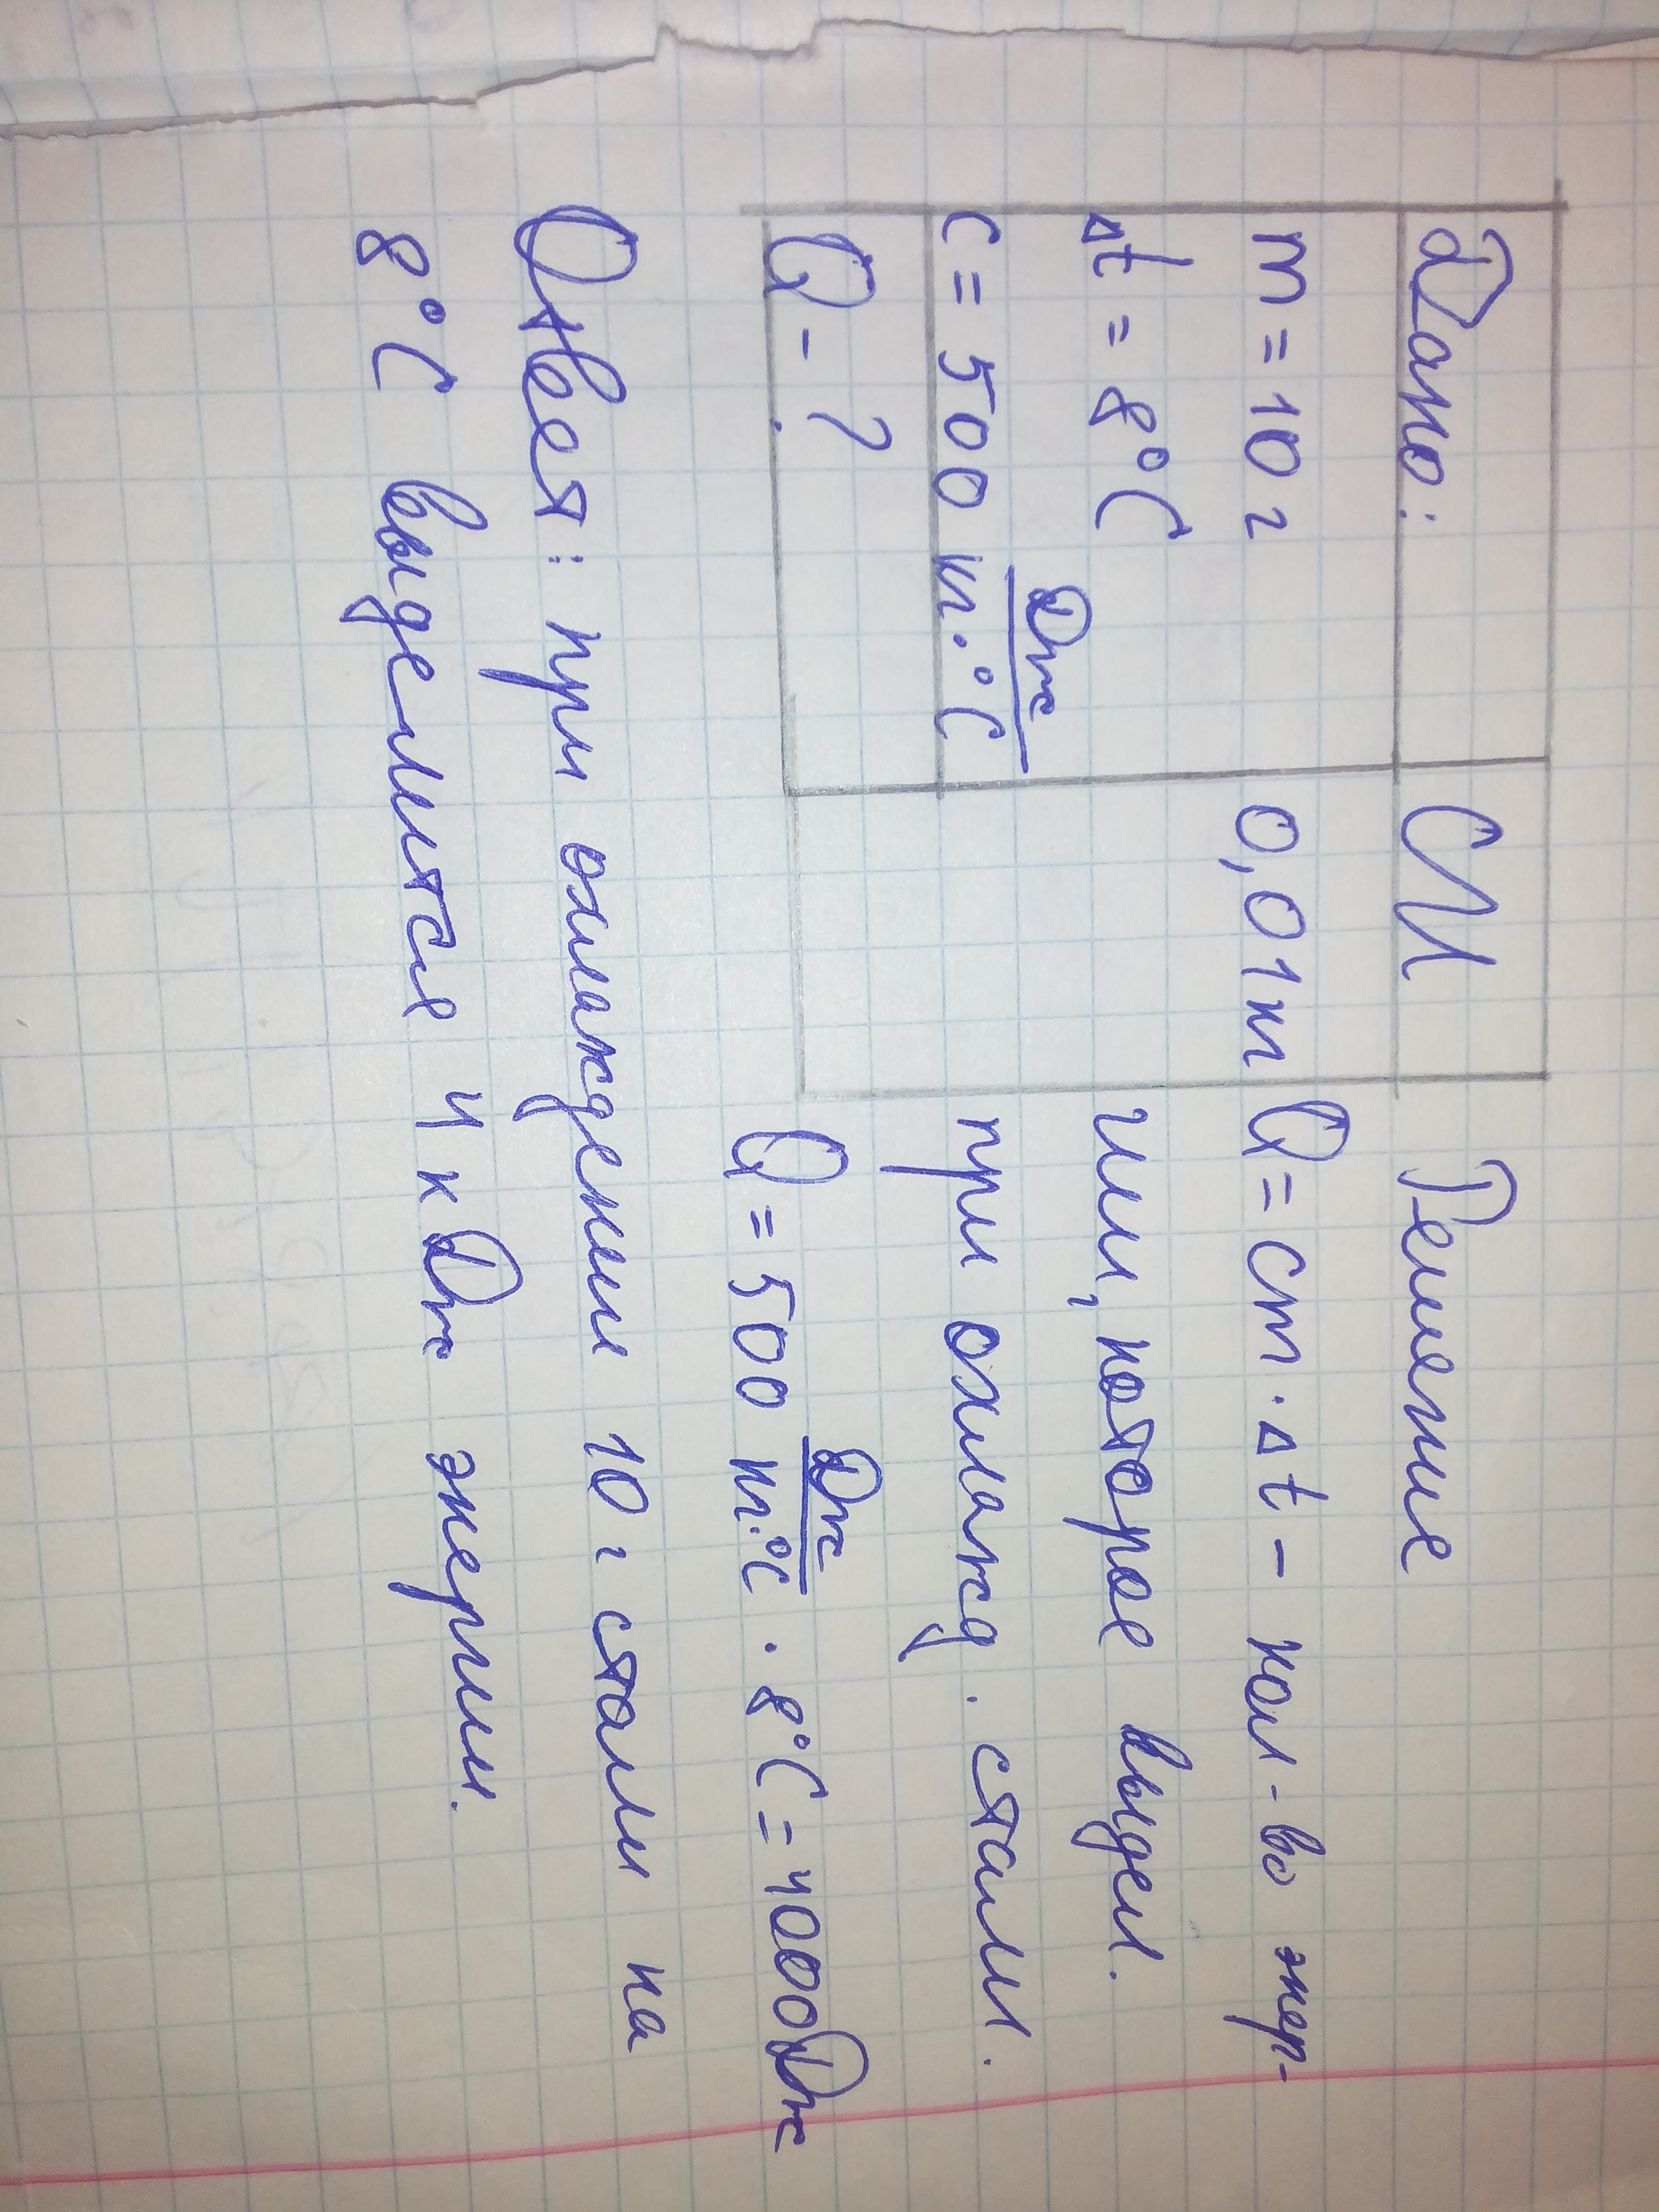 Дано: СИ Решение
m = 10 г 0,01 кг Q = cm · Δt – кол-во энер-
Δt = 8°C гии, которое выдел.
c = 500 Дж/кг·°C при охлажд. стали.
Q – ? Q = 500 Дж/кг·°C · 8°C = 4000 Дж
Ответ: при охлаждении 10 г стали на
8°C выделится 4 кДж энергии.